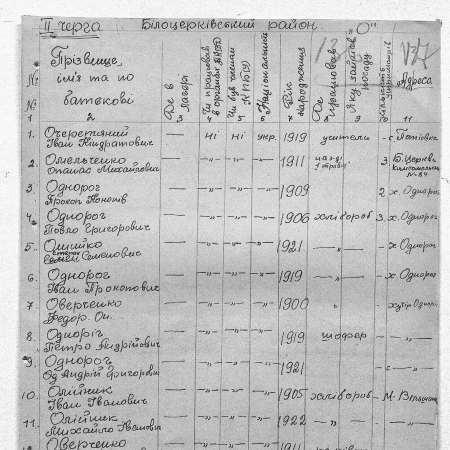 II черга Білоцерківський район. "О"
№ № Прізвище, ім'я та по батькові Де в лагері Чи працював в органах НКВД Чи був членом КПБ(У) Національність Рік народження Де працював Яку займав посаду Адреса
1 2 3 4 5 6 7 8 9 11
1. Очеретяний — ні ні укр. 1919 учитель - с.
Іван Кіндратович
2. Омельченко — " " " 1911 3 Б. Церква
Опанас Михайлович
3. Однорог — " " " 1909 2 х. Однорог
Прокоп
4. Однорог — " " " 1906 хлібороб 3 х. Однорог
Павло Григорович
5. Онишко — " " " 1921 — " — - х. Однорог
Семенович
6. Однорог — " " " 1919 — " — х. Однорог
Іван Прокопович
7 Оверченко — " " " 1900 " хутір Однорі
Федор. Он.
8. Одноріг — " " " 1919 шофер — " —
Петро Андрійович
9. Однорог — " " " 1921 с — " —
Од Андрій Григорович
10. Олійник — " " " 1905 хлібороб - М.
Іван Іванович
11. Олійник — " " " 1922 — " — — " —
Михайло Іванович
Оверченко — " " " 1911